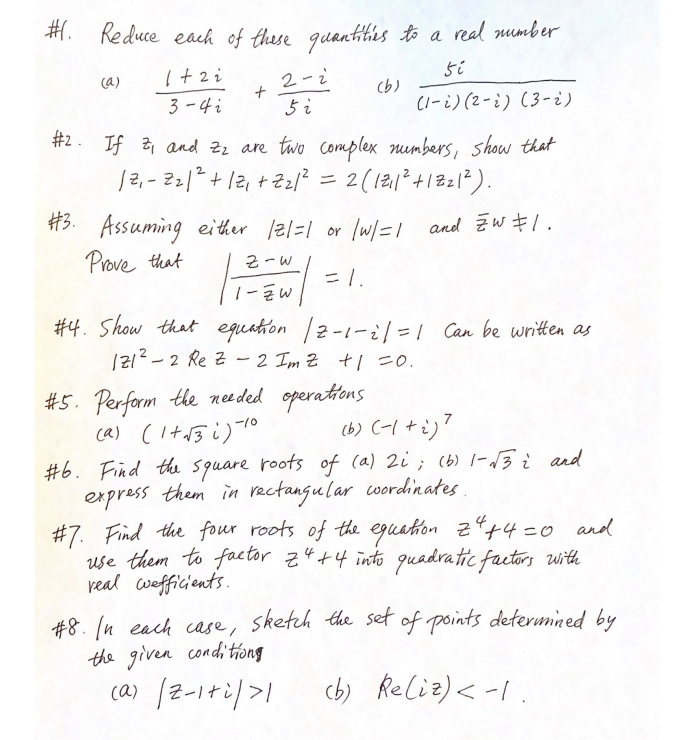 #1. Reduce each of these quantities to a real number
(a) (1+2i)/(3-4i) + (2-i)/(5i) (b) 5i/((1-i)(2-i)(3-i))
#2. If z₁ and z₂ are two complex numbers, show that
|z₁-z₂|² + |z₁+z₂|² = 2(|z₁|²+|z₂|²).
#3. Assuming either |z|=1 or |w|=1 and z̄w≠1.
Prove that |(z-w)/(1-z̄w)| = 1.
#4. Show that equation |z-1-i|=1 Can be written as
|z|² - 2 Re z - 2 Im z +1 =0.
#5. Perform the needed operations
(a) (1+√3 i)⁻¹⁰ (b) (-1+i)⁷
#6. Find the square roots of (a) 2i ; (b) 1-√3 i and
express them in rectangular coordinates.
#7. Find the four roots of the equation z⁴+4=0 and
use them to factor z⁴+4 into quadratic factors with
real coefficients.
#8. In each case, sketch the set of points determined by
the given conditions
(a) |z-1+i|>1 (b) Re(iz)<-1.